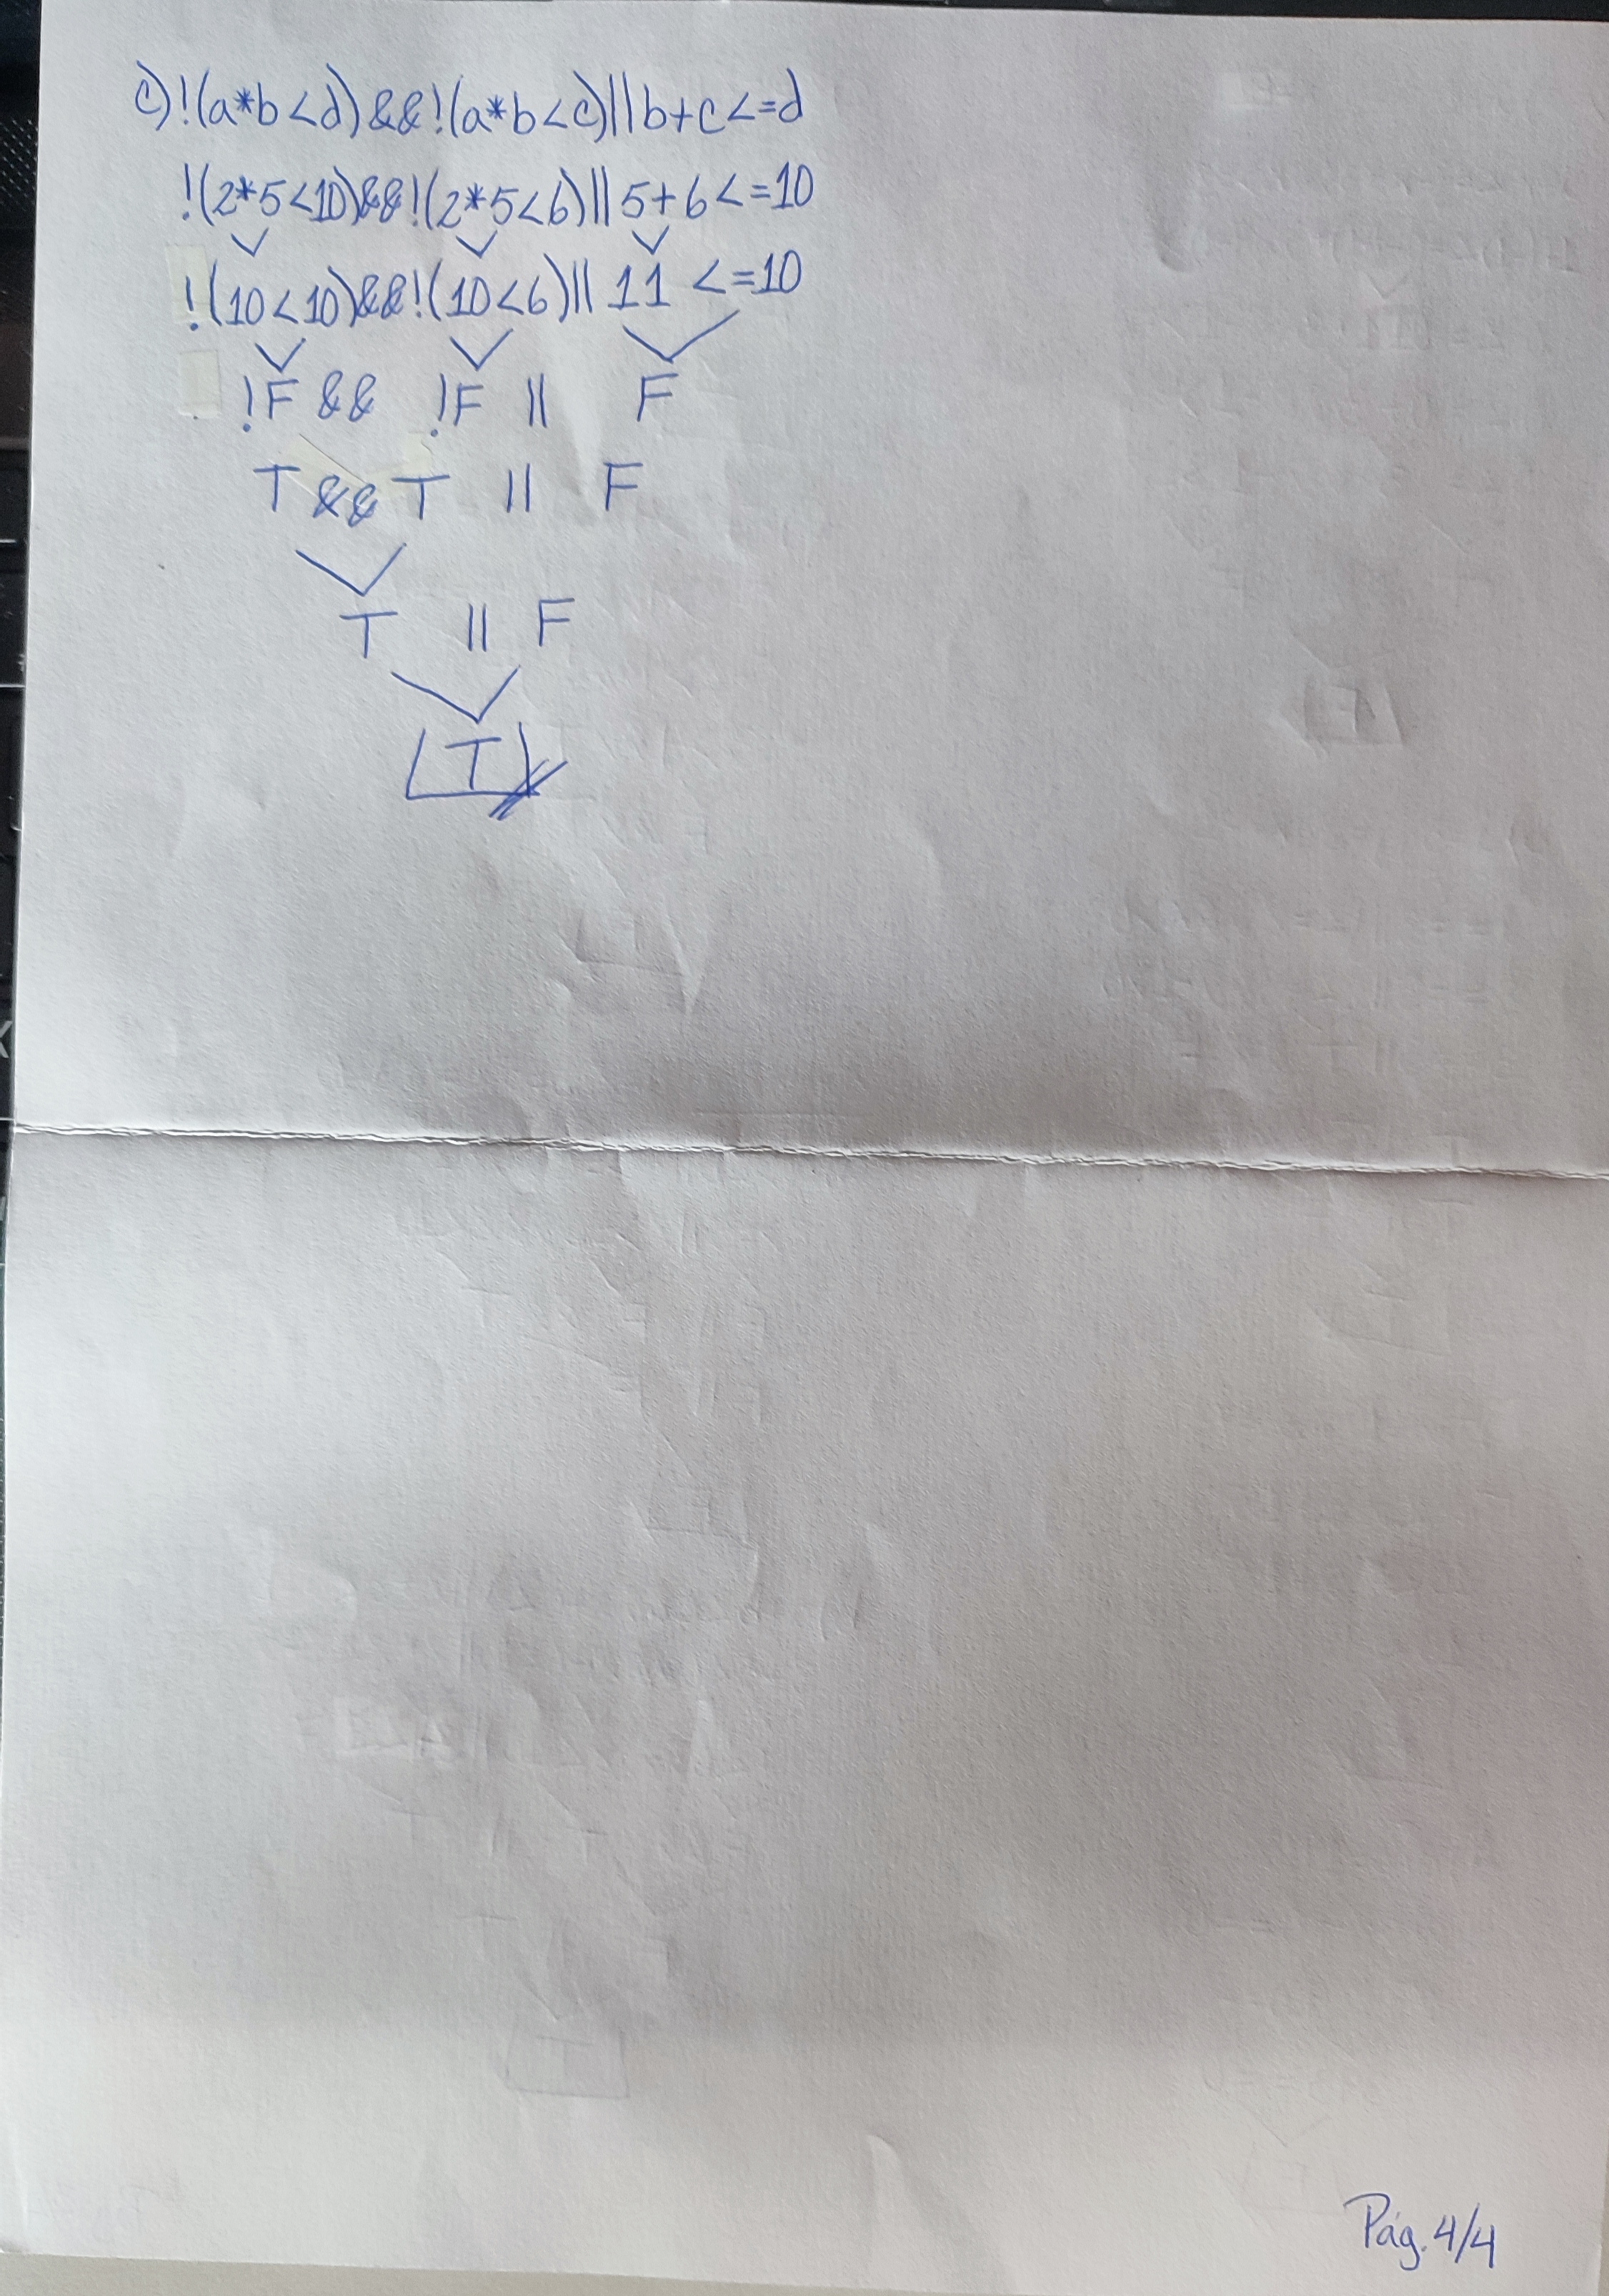 c) !(a*b<d)&&!(a*b<c)||b+c<=d
!(2*5<10)&&!(2*5<6)||5+6<=10
!(10<10)&&!(10<6)||11 <=10
!F && !F || F
T && T || F
T || F
T
Pág. 4/4